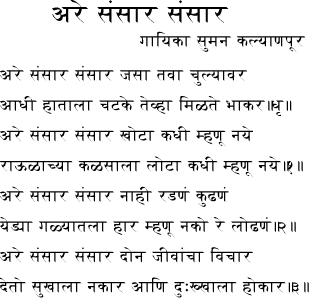 अरे संसार संसार
गायिका सुमन कल्याणपूर
अरे संसार संसार जसा तवा चुल्यावर
आधी हाताला चटके तेव्हा मिळते भाकर॥धृ॥
अरे संसार संसार खोटा कधी म्हणू नये
राऊळाच्या कळसाला लोटा कधी म्हणू नये॥१॥
अरे संसार संसार नाही रडणं कुढणं
येड्या गळ्यातला हार म्हणू नको रे लोढणं॥२॥
अरे संसार संसार दोन जीवांचा विचार
देतो सुखाला नकार आणि दुःख्खाला होकार॥३॥